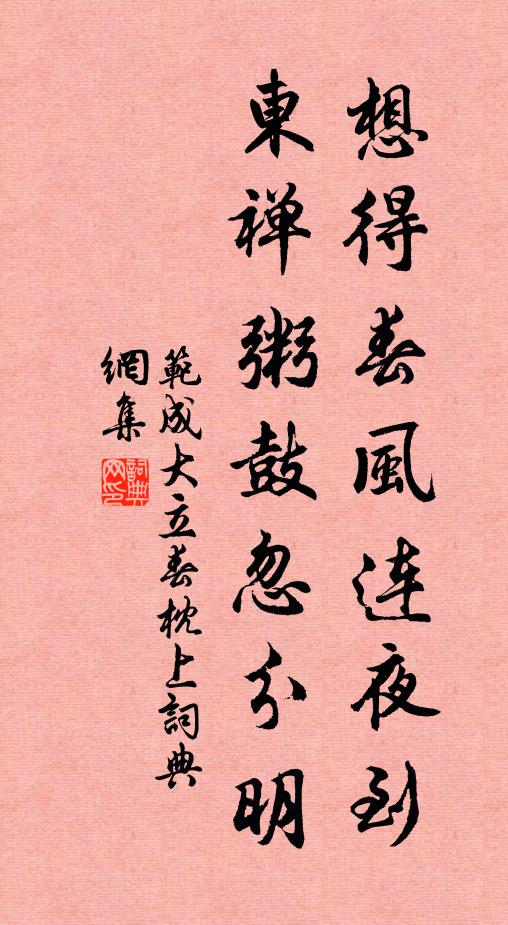 想得春風連夜到
東禅粥鼓忽分明
範成大立春枕上詞典
網集
詞典
网印